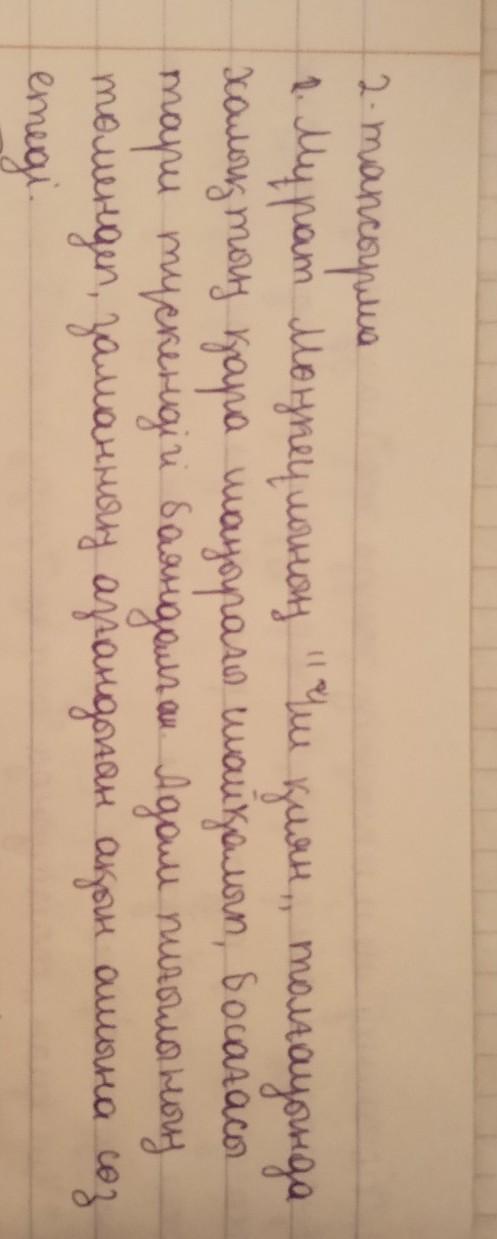 2-тапсырма
1. Мұрат Мөңкеұлының "Үш қиян" толғауында
халықтың қара шаңырағы шайқалып, босағасы
тари түскендігі баяндалған. Адам пиғылының
төмендеп, заманның азғандығын ақын ашына сөз
етеді.